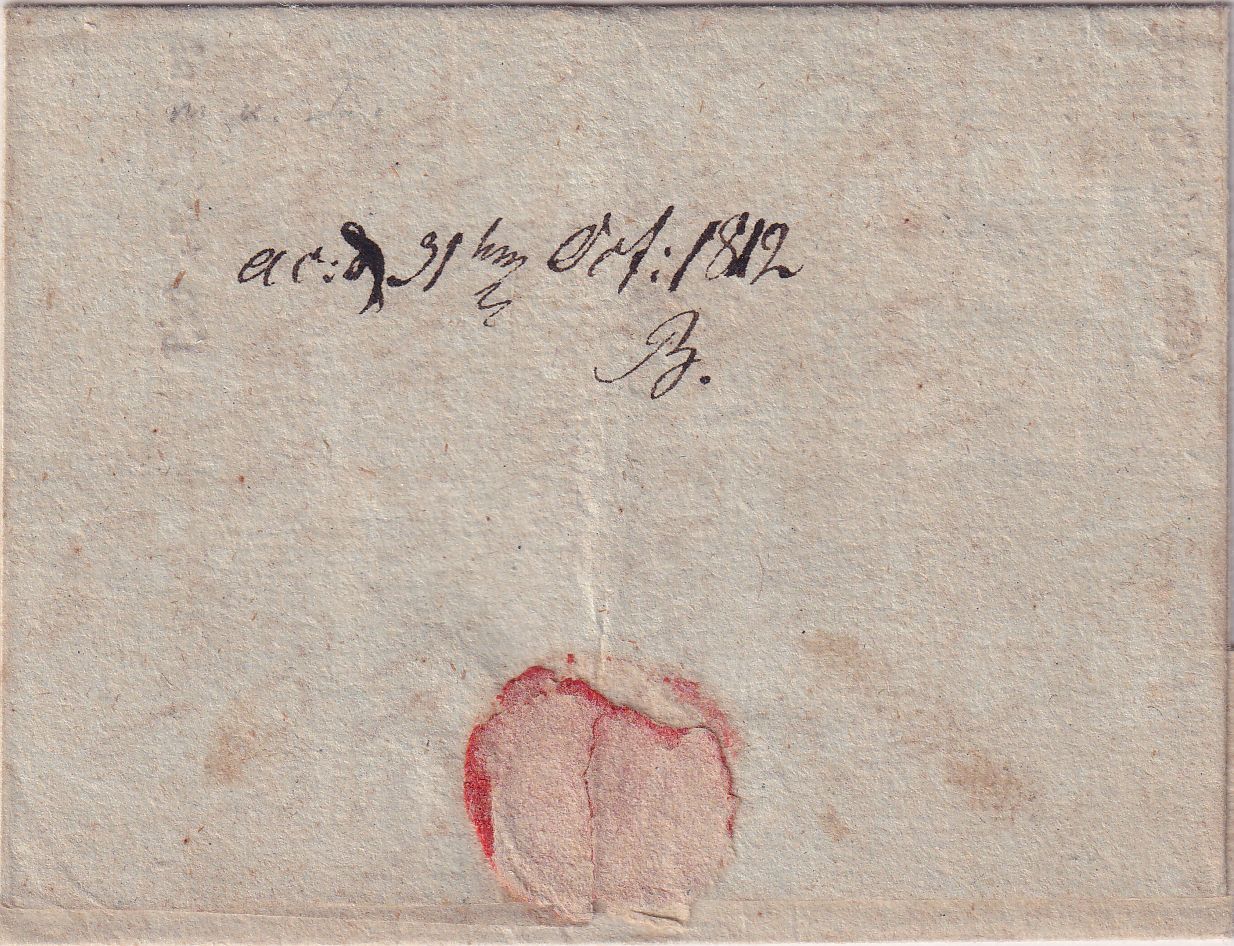 ac: d 31ten Oct: 1812
B.